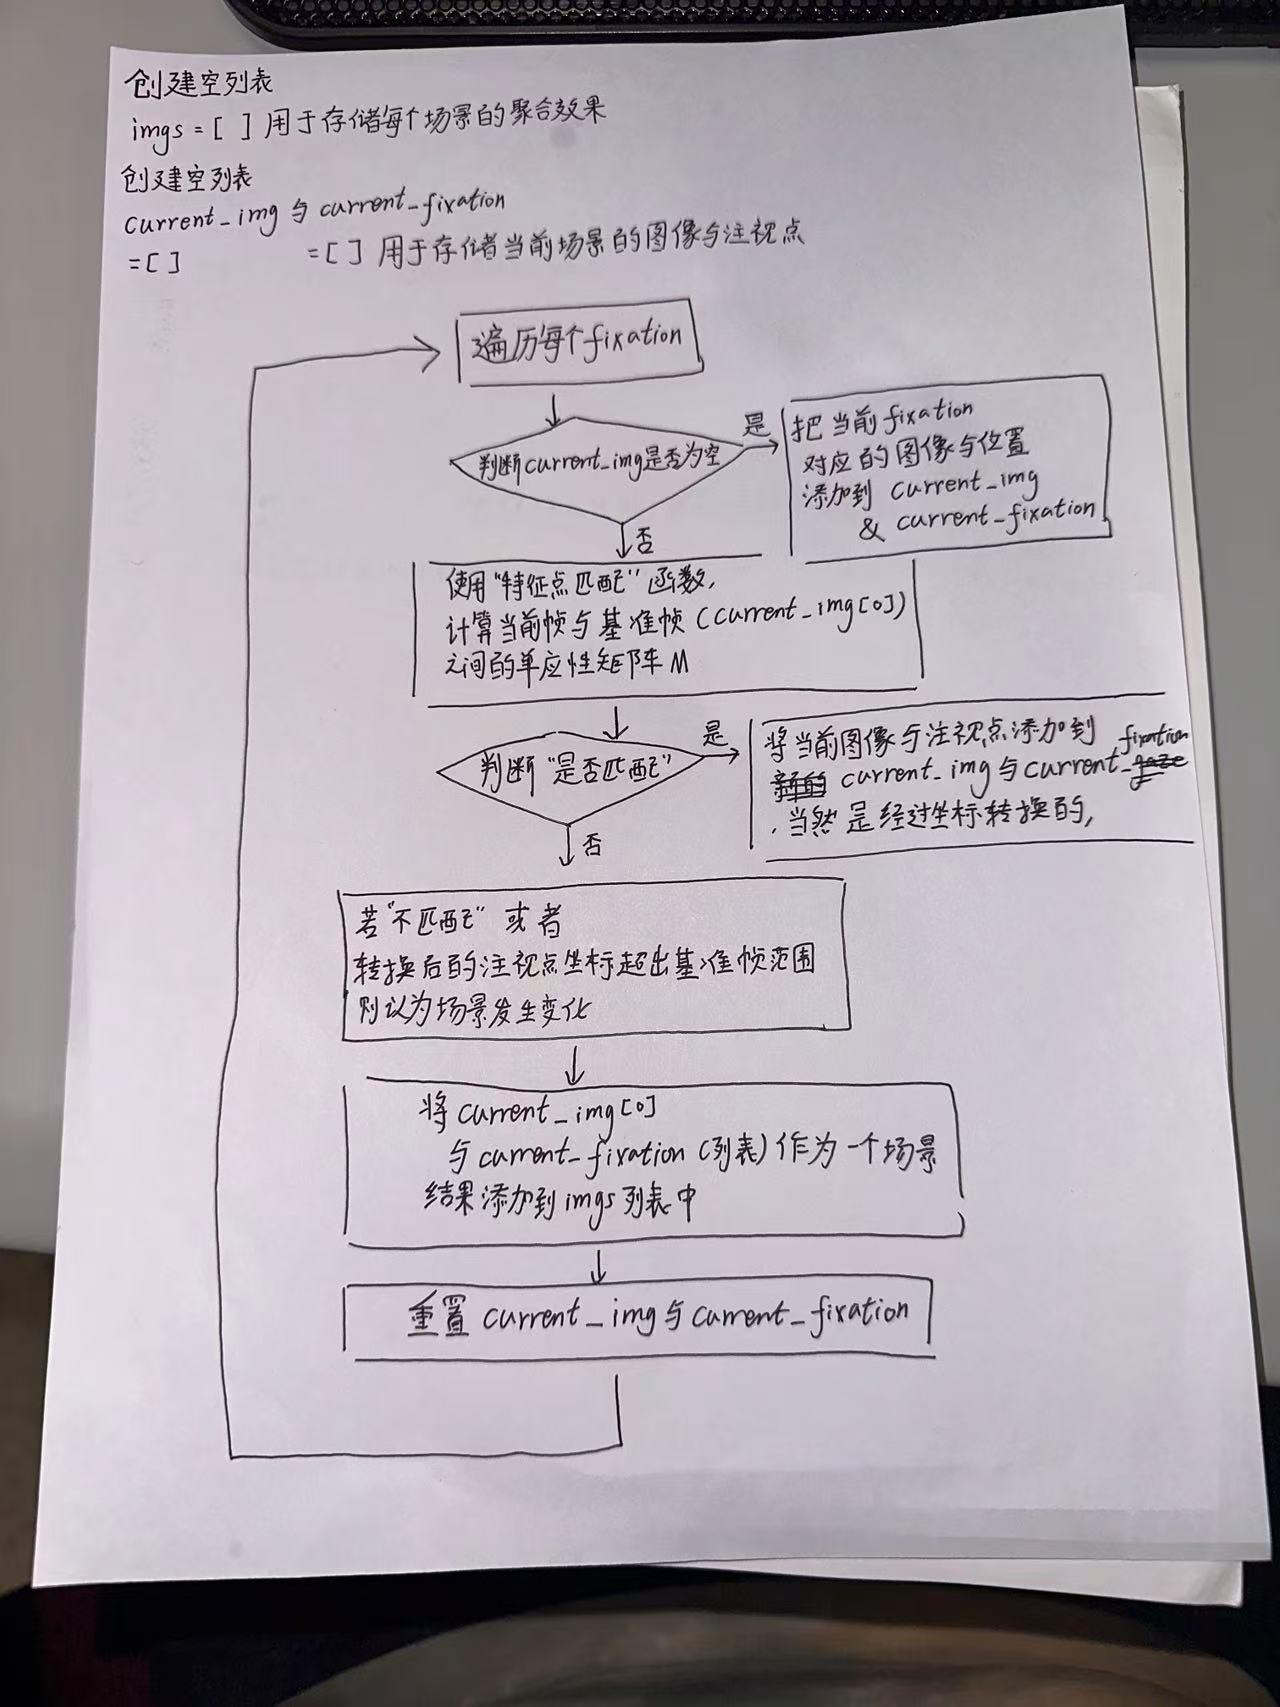 创建空列表
imgs = [ ] 用于存储每个场景的聚合效果
创建空列表
current_img 与 current_fixation
= [ ] = [ ] 用于存储当前场景的图像与注视点
遍历每个fixation
判断current_img是否为空
是
把当前fixation
对应的图像与位置
添加到 current_img
& current_fixation
否
使用“特征点匹配”函数,
计算当前帧与基准帧(current_img[0])
之间的单应性矩阵M
判断“是否匹配”
是
将当前图像与注视点添加到 fixation
新的 current_img与current_gaze
,当然是经过坐标转换的,
否
若“不匹配”或者
转换后的注视点坐标超出基准帧范围
则认为场景发生变化
将current_img[0]
与current_fixation(列表)作为一个场景
结果添加到imgs列表中
重置 current_img与current_fixation